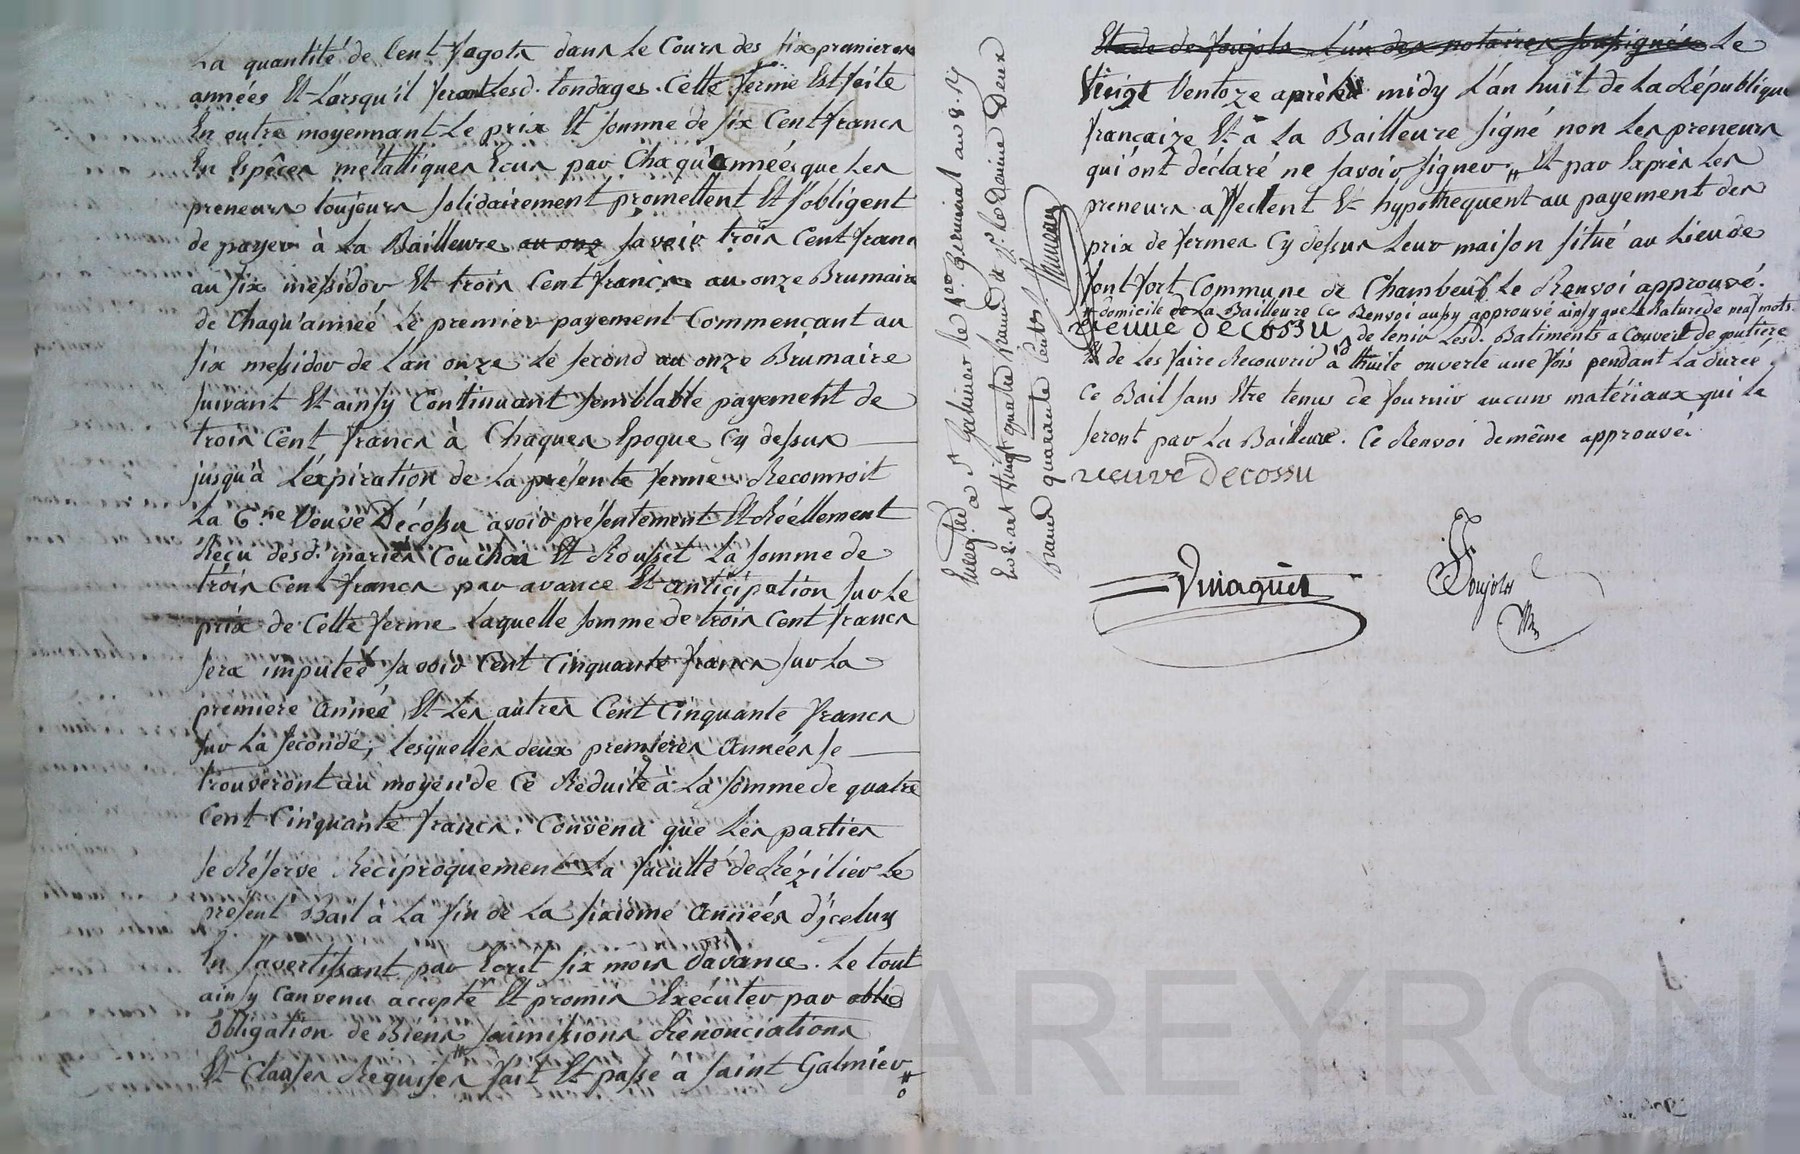 La quantité de Cent fagots dans Le Cours des six premieres
années Et Lorsqu'il feront Lesd. tondages. Cette ferme Est faite
En outre moyennant Le prix Et somme de six Cent francs
En Espêces métalliques Ecus par Chaqu'année que Les
preneurs toujours solidairement promettent Et s'obligent
de payer à La Bailleure au onze savoir trois Cent franc
au six messidor Et trois Cent francs au onze Brumaire
de Chaqu'année Le premier payement Commençant au
six messidor de L'an onze Le second au onze Brumaire
suivant Et ainsy Continuant semblable payement de
trois Cent francs à Chaques Epoque Cy dessus
jusqu'à L'éxpiration de La présente ferme Reconnoit
La C.ne Veuve Décossu avoir présentement Et Réellement
Reçu desd. mariés Couchou Et Rousset La somme de
trois Cent francs par avance Et anticipation sur Le
prix de Cette ferme Laquelle somme de trois Cent francs
sera imputéé savoir Cent Cinquante francs sur La
premiere année Et Les autres Cent Cinquante francs
sur La seconde, Lesquelles deux premieres années se
trouveront au moyen de Ce Réduite à La somme de quatre
Cent Cinquante francs. Convenu que Les parties
se Réserve Réciproquement La faculté de Rézilier Le
présent Bail à La fin de La sixieme Années d'jceluy
En s'avertissant par Ecrit six mois d'avance. Le tout
ainsy Convenu accepté Et promis Exécuter par oblig
obligation de Biens soumissions Renonciations
Et Clauses Requises fait Et passé à Saint Galmier
Enregtré a St Galmier le 1er Germinal an 8. fo
quatre francs
francs quarante Cent.
Etude de foujols L'un des notaires soussignés Le
Vingt Ventoze après midy L'an huit de La République
françaize Et à La Bailleure signé non Les preneurs
qui ont déclaré ne savoir signer. Et par Exprès Les
preneurs affectent Et hypothequent au payement des
prix de fermes Cy dessus Leur maison situé au Lieu de
fontfort Commune de Chambeuf. Le Renvoi approuvé.
domicile de La Bailleure Ce Renvoi aussy approuvé ainsy que La Rature de neuf mots.
veuve decossu
de tenir Lesd. Batiments a Couvert de goutiere
de Les faire Recouvrir à thuile ouverte une fois pendant La durée
Ce Bail sans Etre tenus de fournir aucuns matériaux qui Le
seront par La Bailleure. Ce Renvoi de même approuvé.
veuve Decossu
Vinaguet
Foujols
TAREYRON